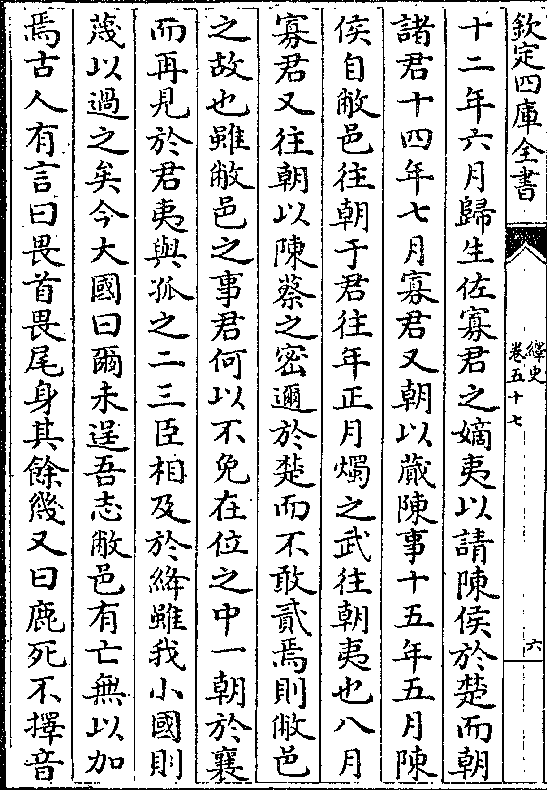 欽定四庫全書
繹史
卷五十七
六
十二年六月歸生佐寡君之嫡夷以請陳侯於楚而朝
諸君十四年七月寡君又朝以蕆陳事十五年五月陳
侯自敝邑往朝于君往年正月燭之武往朝夷也八月
寡君又往朝以陳蔡之密邇於楚而不敢貳焉則敝邑
之故也雖敝邑之事君何以不免在位之中一朝於襄
而再見於君夷與孤之二三臣相及於絳雖我小國則
蔑以過之矣今大國曰爾未逞吾志敝邑有亡無以加
焉古人有言曰畏首畏尾身其餘幾又曰鹿死不擇音